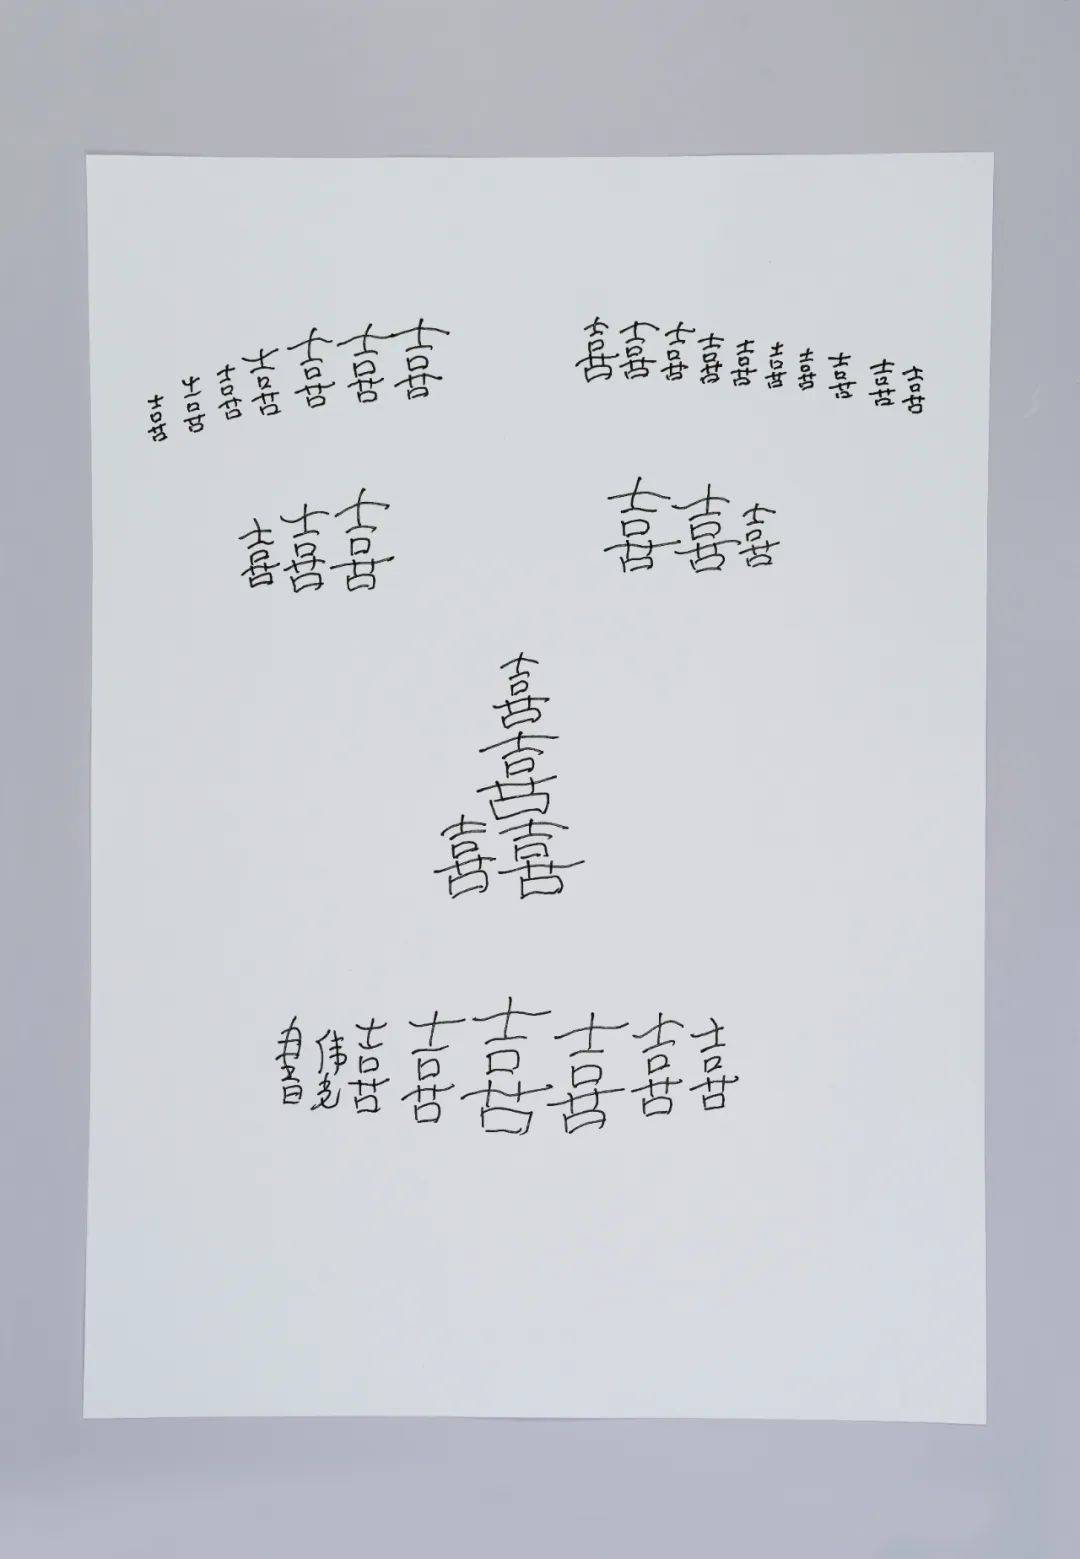 喜喜喜喜喜喜喜 喜喜喜喜喜喜喜喜喜喜
喜喜喜 喜喜喜
喜
喜
喜喜
喜喜喜喜喜喜伟光書